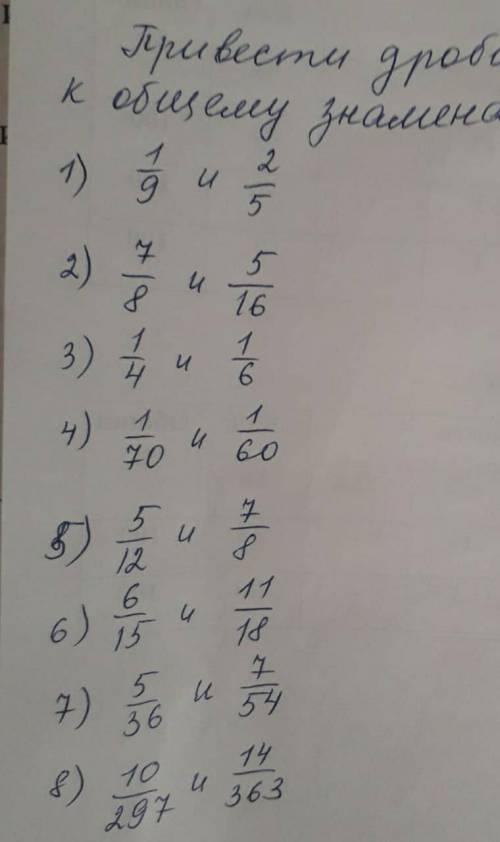 Привести дроб
к общему знамена
1) 1/9 и 2/5
2) 7/8 и 5/16
3) 1/4 и 1/6
4) 1/70 и 1/60
5) 5/12 и 7/8
6) 6/15 и 11/18
7) 5/36 и 7/54
8) 10/297 и 14/363